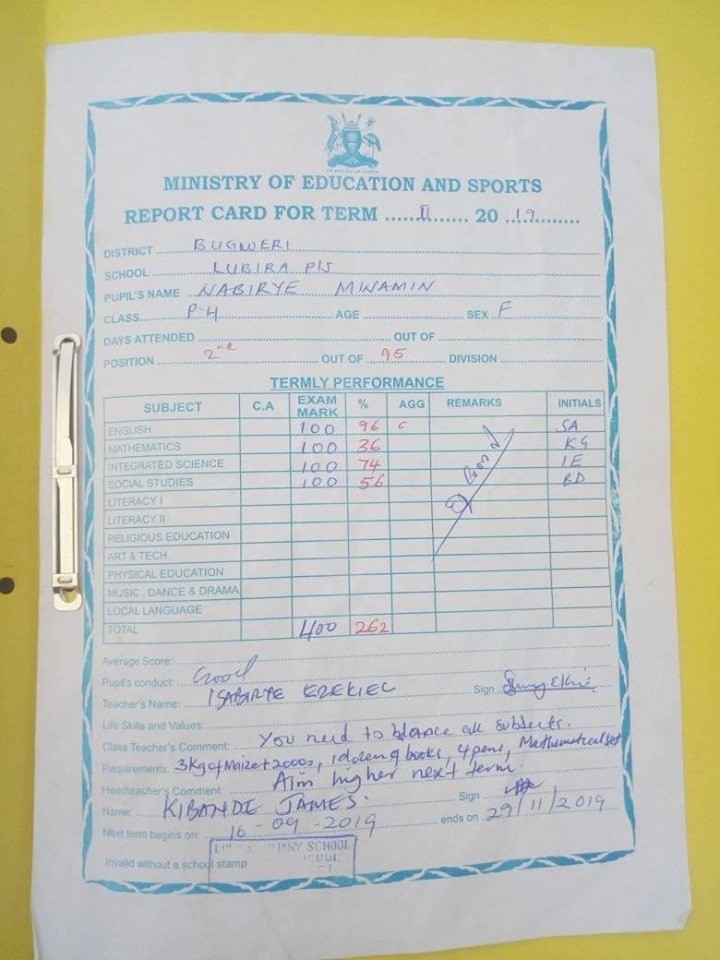 MINISTRY OF EDUCATION AND SPORTS
REPORT CARD FOR TERM ...... II ....... 20 .19...........
DISTRICT BUGWERI
SCHOOL LUBIRA P/S
PUPIL'S NAME NABIRYE MWAMIN
CLASS P-4 AGE SEX F
DAYS ATTENDED OUT OF
POSITION 2nd OUT OF 95 DIVISION
TERMLY PERFORMANCE
SUBJECT C.A EXAM MARK % AGG REMARKS INITIALS
ENGLISH 100 96 SA
MATHEMATICS 100 36 KG
INTEGRATED SCIENCE 100 74 IE
SOCIAL STUDIES 100 56 BD
Good
LITERACY I
LITERACY II
RELIGIOUS EDUCATION
ART & TECH
PHYSICAL EDUCATION
MUSIC , DANCE & DRAMA
LOCAL LANGUAGE
TOTAL 400 262
Average Score:
Pupil's conduct: Good
Teacher's Name: ISABIRYE EZEKIEL Sign
Life Skills and Values:
Class Teacher's Comment: You need to balance all subjects.
Requirements: 3kg of Maize + 2000=, 1 dozen of books, 4 pens, Mathematical set
Headteacher's Comment: Aim higher next term.
Name: KIBANDE JAMES. Sign
Next term begins on: 16 - 09 - 2019 ends on 29/11/2019
Invalid without a school stamp
SCHOOL